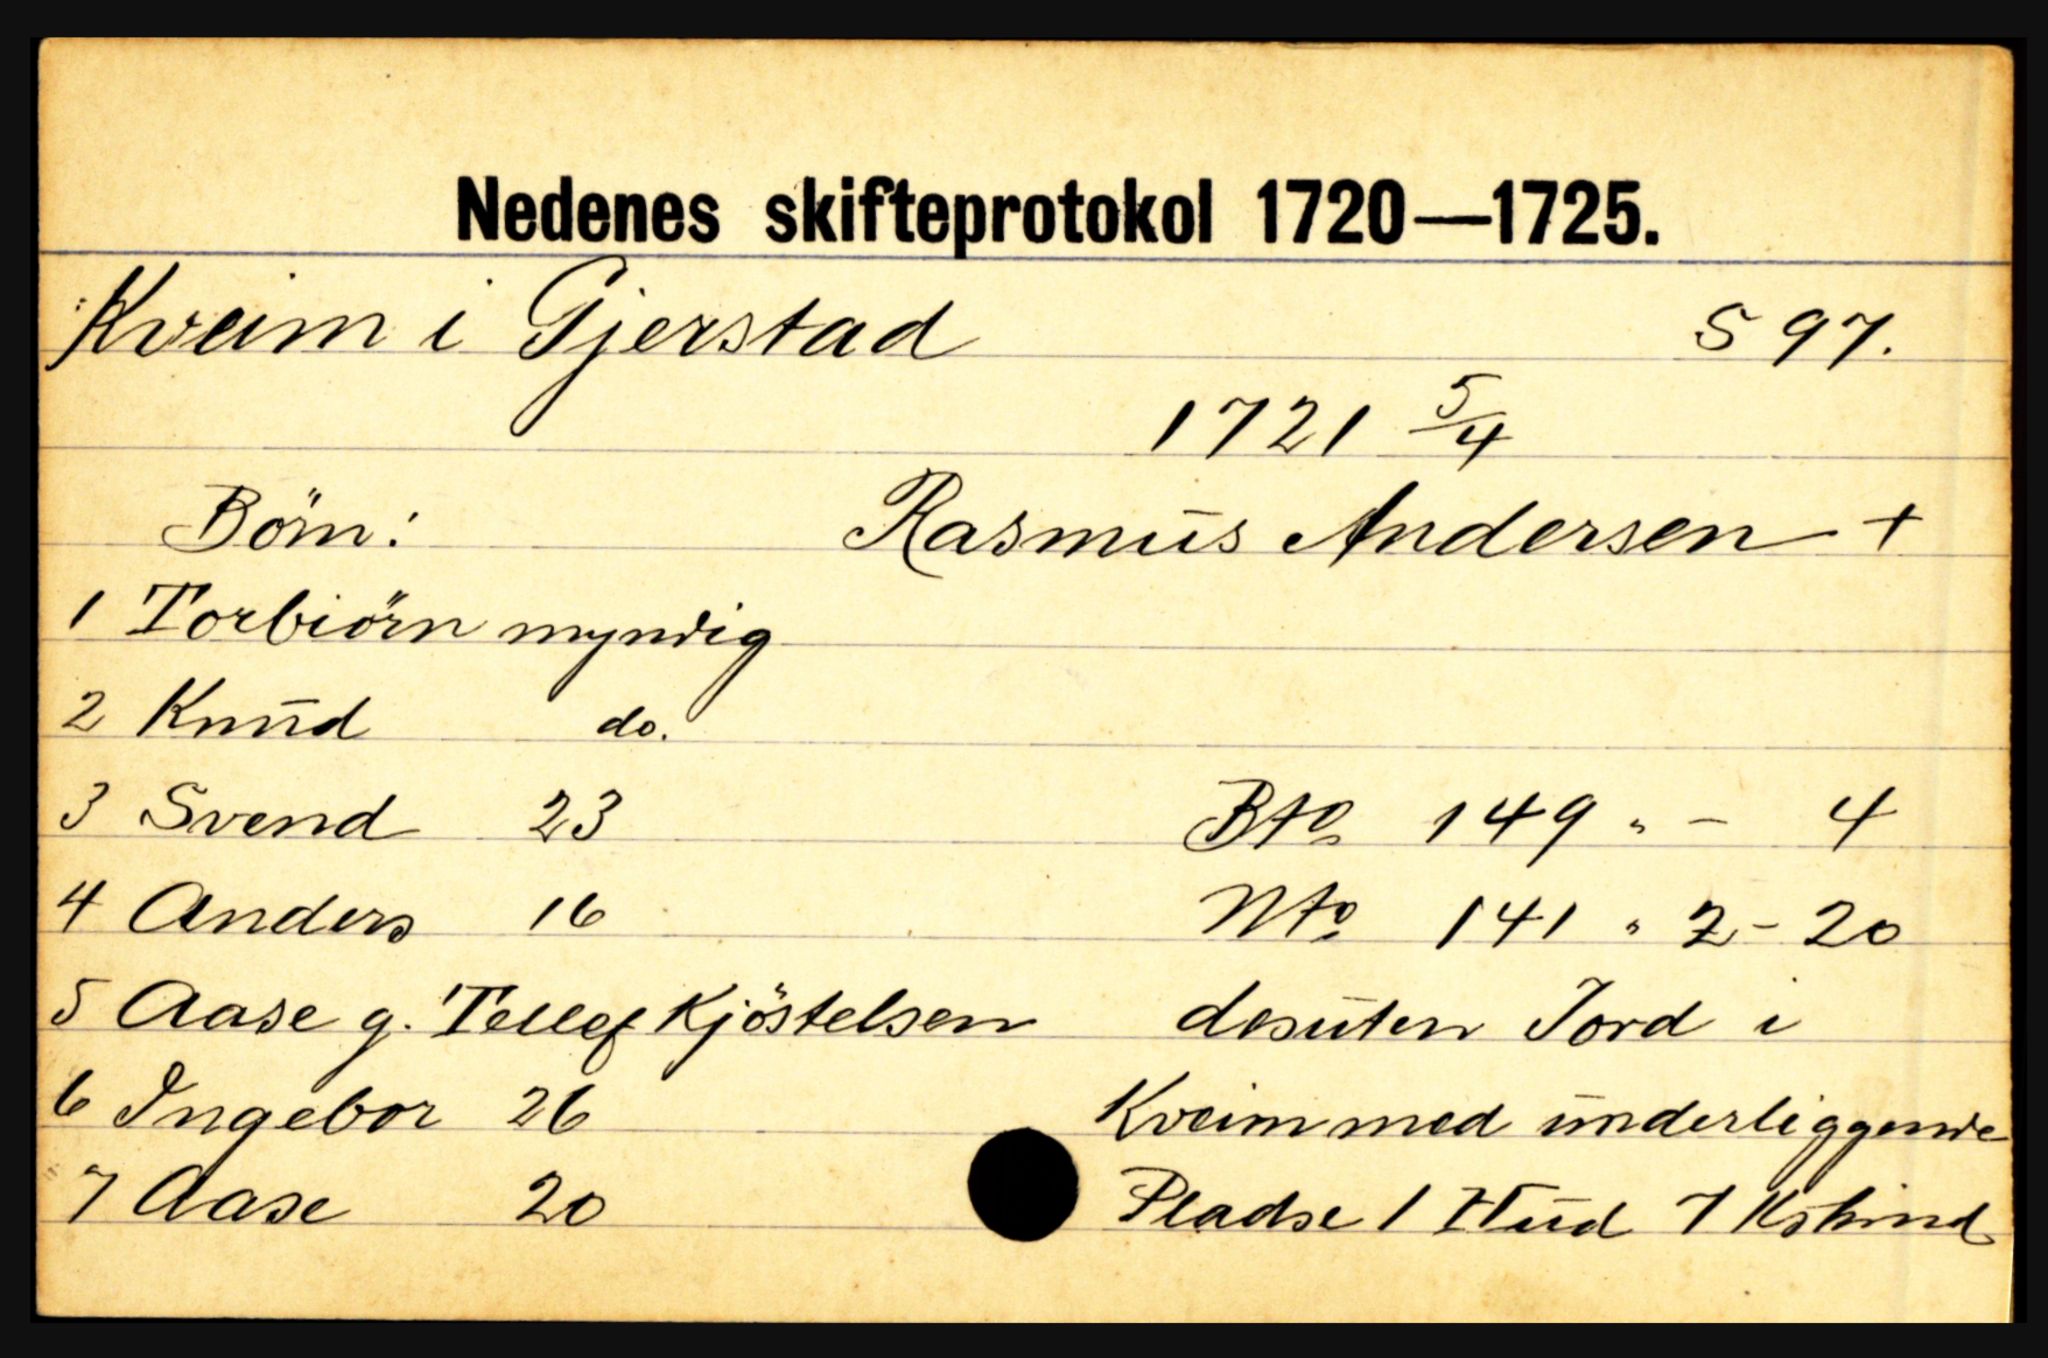 Nedenes skifteprotokol 1720—1725.
Kveim i Gjerstad S 97.
1721 5/4
Börn: Rasmus Andersen +
1 Torbiörn myndig
2 Knud do.
3 Svend 23 Bto 149 " - 4
4 Anders 16 Nto 141 " 2 - 20
5 Aase g. Tellef Kjöstelsen desuten Jord i
6 Ingebor 26 Kveim med underliggende
7 Aase 20 Pladse 1 Hud 7 Kskind